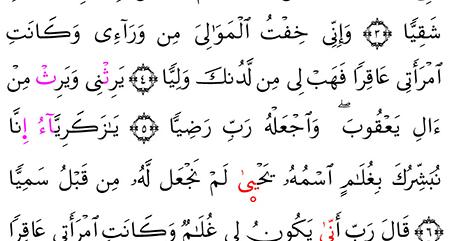 شَقِيًّا ﴿٣﴾ وَإِنِّى خِفْتُ ٱلْمَوَٰلِىَ مِن وَرَآءِى وَكَانَتِ
ٱمْرَأَتِى عَاقِرًا فَهَبْ لِى مِن لَّدُنكَ وَلِيًّا ﴿٤﴾ يَرِثْنِى وَيَرِثْ مِنْ
ءَالِ يَعْقُوبَ ۖ وَٱجْعَلْهُ رَبِّ رَضِيًّا ﴿٥﴾ يَٰزَكَرِيَّآءُ إِنَّا
نُبَشِّرُكَ بِغُلَٰمٍ ٱسْمُهُۥ يَحْيىٰ لَمْ نَجْعَل لَّهُۥ مِن قَبْلُ سَمِيًّا
﴿٦﴾ قَالَ رَبِّ أَنّىٰ يَكُونُ لِى غُلَٰمٌ وَكَانَتِ ٱمْرَأَتِى عَاقِرًا